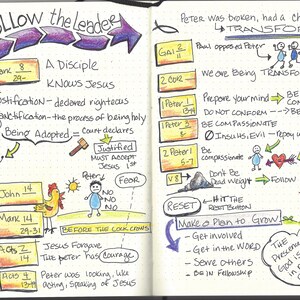 FOLLOW the leader
Mark 8
29-
A DISCIPLE
KNOWS JESUS
Justification - declared righteous
Sanctification - the process of being holy
Being Adopted,
Court declares
Justified
MUST ACCEPT
JESUS 1st
FEAR
Peter
NO
NO
NO
John 14
Mark 14
29-31
BEFORE THE COCK CROWS
Acts 2
14
Jesus Forgave
The Peter has Courage
Acts 4
13
Peter was looking, like
acting, speaking of Jesus
PETER WAS BROKEN, HAD A CH
TRANSFOR
Gal 2
11
Paul opposed Peter
2 COR
We are Being TRANSFO
1 Peter 1
13-
Prepare your mind
BE
DO NOT CONFORM
BE
BE COMPASSIONATE
INSULTS, EVIL - Repay u
2 Peter 1
6-7
Be
compassionate
V 8
Don't Be
Dead Weight
Follow
RESET
HIT THE
RESET BUTTON
Make a Plan to Grow
- Get involved
- Get in the WORD
- Serve others
- Be in Fellowship
The
Presence
God is